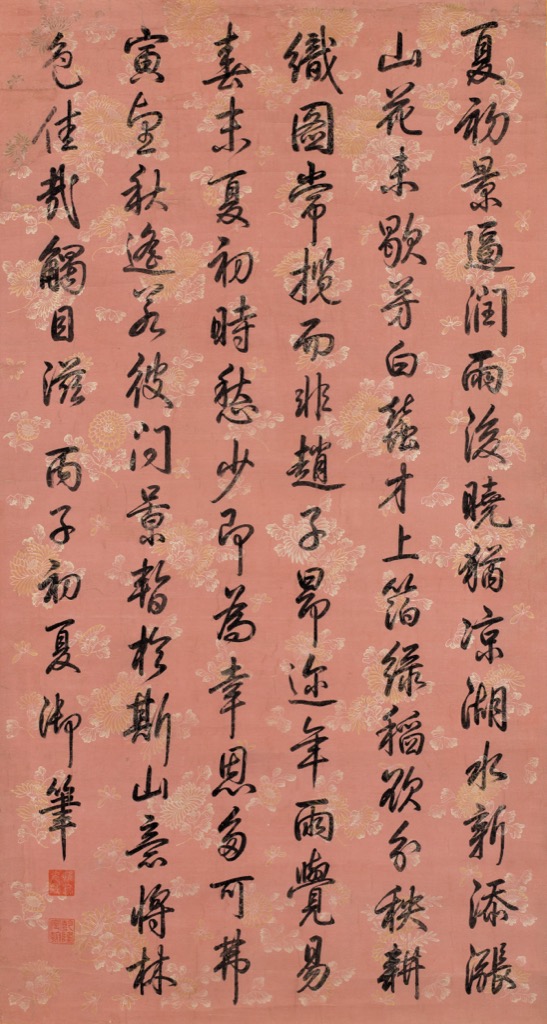 夏初景逼潤雨後曉猶凉湖水新添漲
山花未歇芳白蠶才上箔綠稻欲分秧耕
織圖常攬而非趙子昂邇年雨覺易
春末夏初時愁少即為幸恩多可弗
寅望秋遙若彼問景暫於斯山意將林
色佳哉觸目滋 丙子初夏御筆